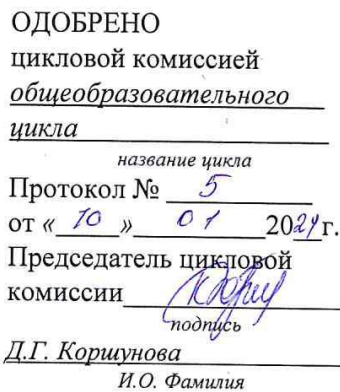 ОДОБРЕНО
цикловой комиссией
общеобразовательного
цикла
название цикла
Протокол № 5
от « 10 » 01 2024 г.
Председатель цикловой
комиссии
подпись
Д.Г. Коршунова
И.О. Фамилия